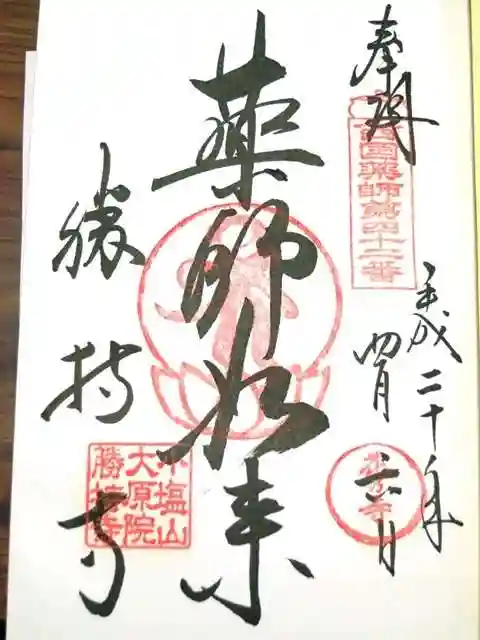 奉拝
西国薬師第四十二番
平成二十年
四月六日
花の寺
薬師如来
勝持寺
小塩山
大原院
勝持寺